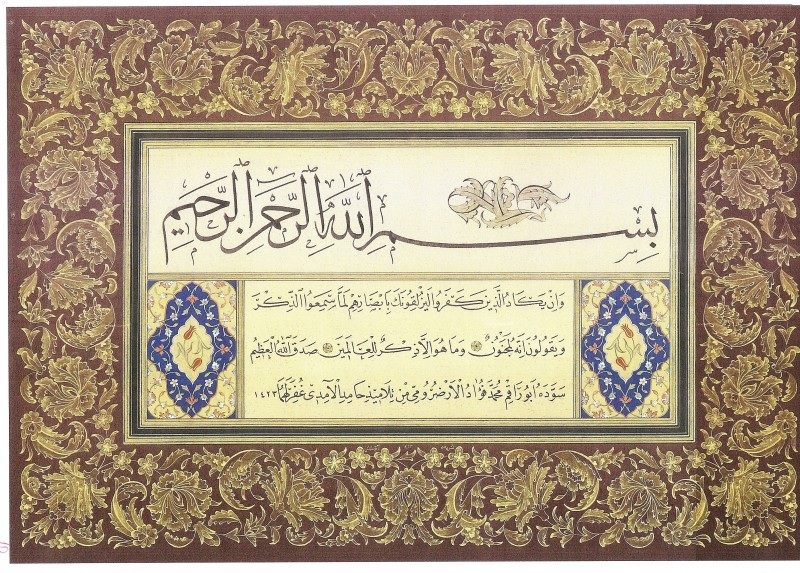 بِسْمِ اللّٰهِ الرَّحْمٰنِ الرَّحِيمِ
وَاِنْ يَكَادُ الَّذِينَ كَفَرُوا لَيُزْلِقُونَكَ بِاَبْصَارِهِمْ لَمَّا سَمِعُوا الذِّكْرَ
وَيَقُولُونَ اِنَّهُ لَمَجْنُونٌ وَمَا هُوَ اِلَّا ذِكْرٌ لِلْعَالَمِينَ صَدَقَ اللّٰهُ الْعَظِيمُ
سَوَّدَهُ اَبُو رَاقِمْ مُحَمَّد فُؤَادُ الْاَرْضَرُومِي مِنْ تَلَامِيذِ حَامِدِ الْآمِدِي غُفِرَ لَهُمَا ١٤٢٣